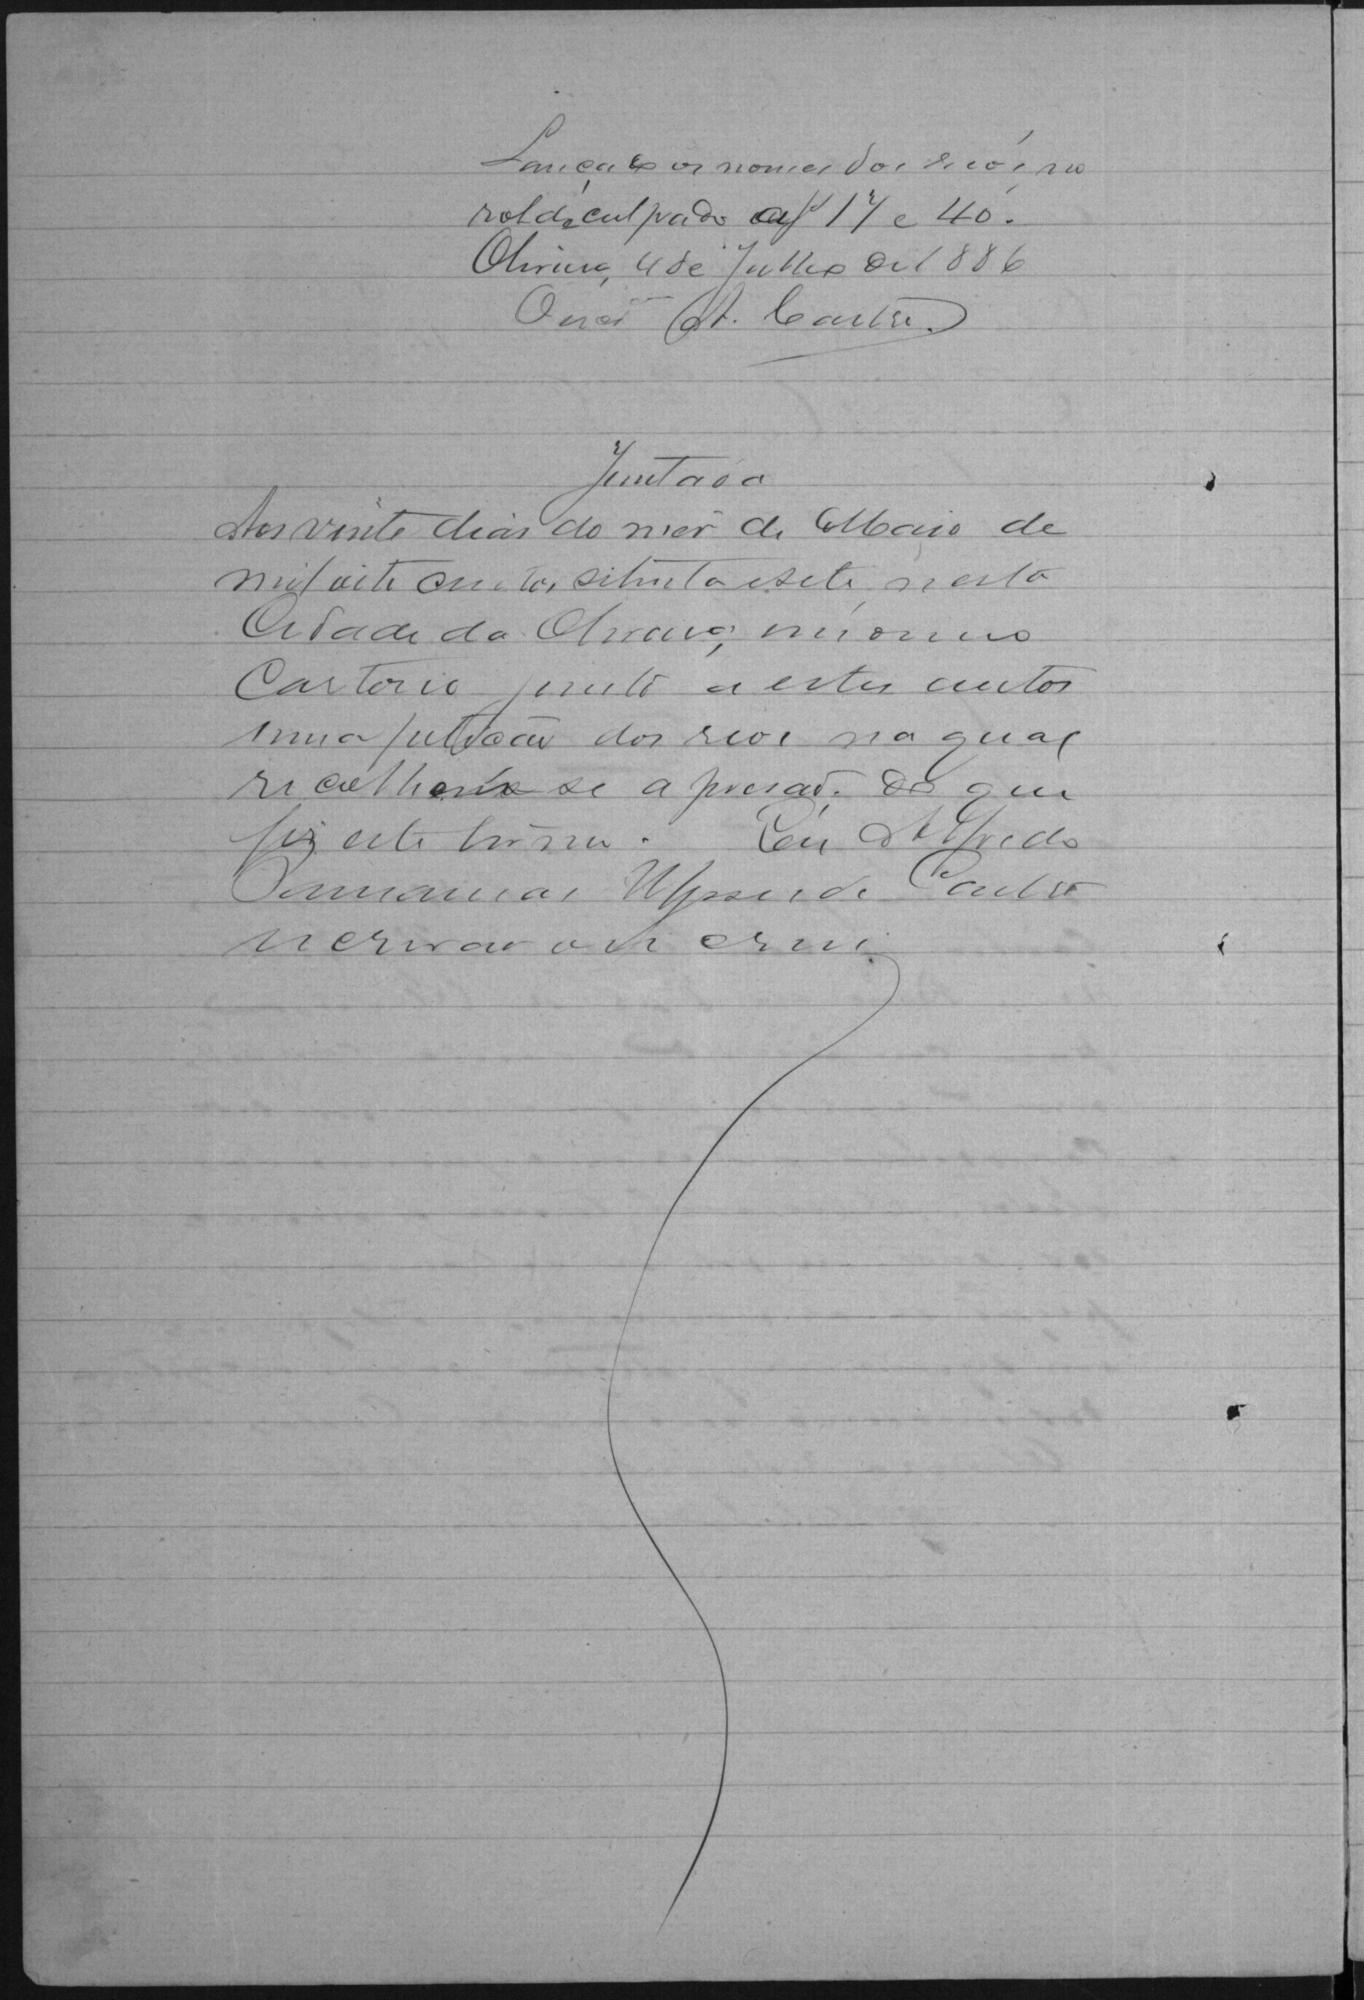 Lançei os nomes dos réos no
rol de culpados a fl 17 e 40.
Oliveira, 4 de Julho de 1886
O escr.m A. Castro.
Juntada
Aos vinte dias do mes de Maio de
mil oito centos, oitenta e sete, nesta
Cidade da Oliveira, em o meu
Cartorio junto a estes autos
uma petição dos reos na qual
recolherão se a prisão. Do que
fiz este termo. Eu Alfredo
de Castro
escrivão o escrevi.